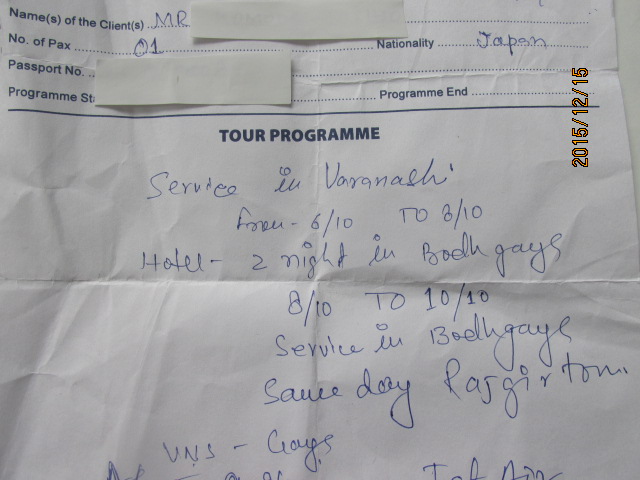 Name(s) of the Client(s) MR
No. of Pax 01 Nationality Japan
Passport No.
Programme Sta Programme End
2015/12/15
TOUR PROGRAMME
Service in Varanashi
From - 6/10 TO 8/10
Hotel - 2 night in Bodhgaya
8/10 TO 10/10
Service in Bodhgaya
Same day Rajgir tour.
VNS - Gaya